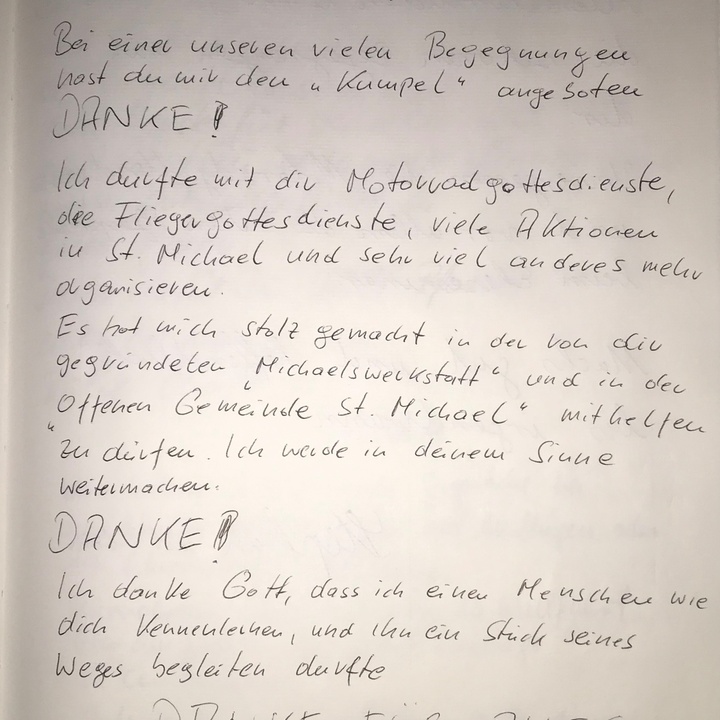 Bei einer unseren vielen Begegnungen
hast du mir den „Kumpel“ angeboten
DANKE!
Ich durfte mit dir Motorradgottesdienste,
die Fliegergottesdienste, viele Aktionen
in St. Michael und sehr viel anderes mehr
organisieren.
Es hat mich stolz gemacht in der von dir
gegründeten „Michaelswerkstatt“ und in der
„Offenen Gemeinde St. Michael“ mithelfen
zu dürfen. Ich werde in deinem Sinne
weitermachen.
DANKE!
Ich danke Gott, dass ich einen Menschen wie
dich kennenlernen, und ihn ein Stück seines
Weges begleiten durfte